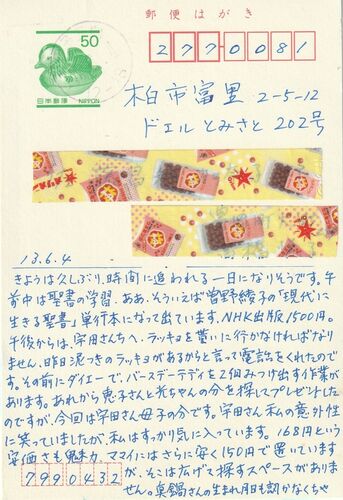 郵便はがき
50
日本郵便 NIPPON
2770081
柏市富里 2-5-12
ドエルとみさと 202号
13.6.4
きようは久しぶり、時間に追われる一日になりそうです。午
前中は聖書の学習。ああ、そういえば曽野綾子の「現代に
生きる聖書」単行本になって出ています。NHK出版1500円。
午後からは、宇田さんちへ、ラッキョを貰いに行かなければなり
ません、昨日泥つきのラッキョがあるからと言って電話をくれたので
す。その前にダイエーで、バースデーテディを2個みつけ出す作業が
あります。あれから恵子さんと光ちゃんの分を探してプレゼントした
のですが、今回は宇田さん母子の分です。宇田さん私の意外性
に笑っていましたが、私はすっかり気に入っています。168円という
安価さも魅力。ママイにはさらに安く150円で置いています
が、そこは広げて探すスペースがありま
せん。真鍋さんの生まれ月も認かなくちゃ
7990432